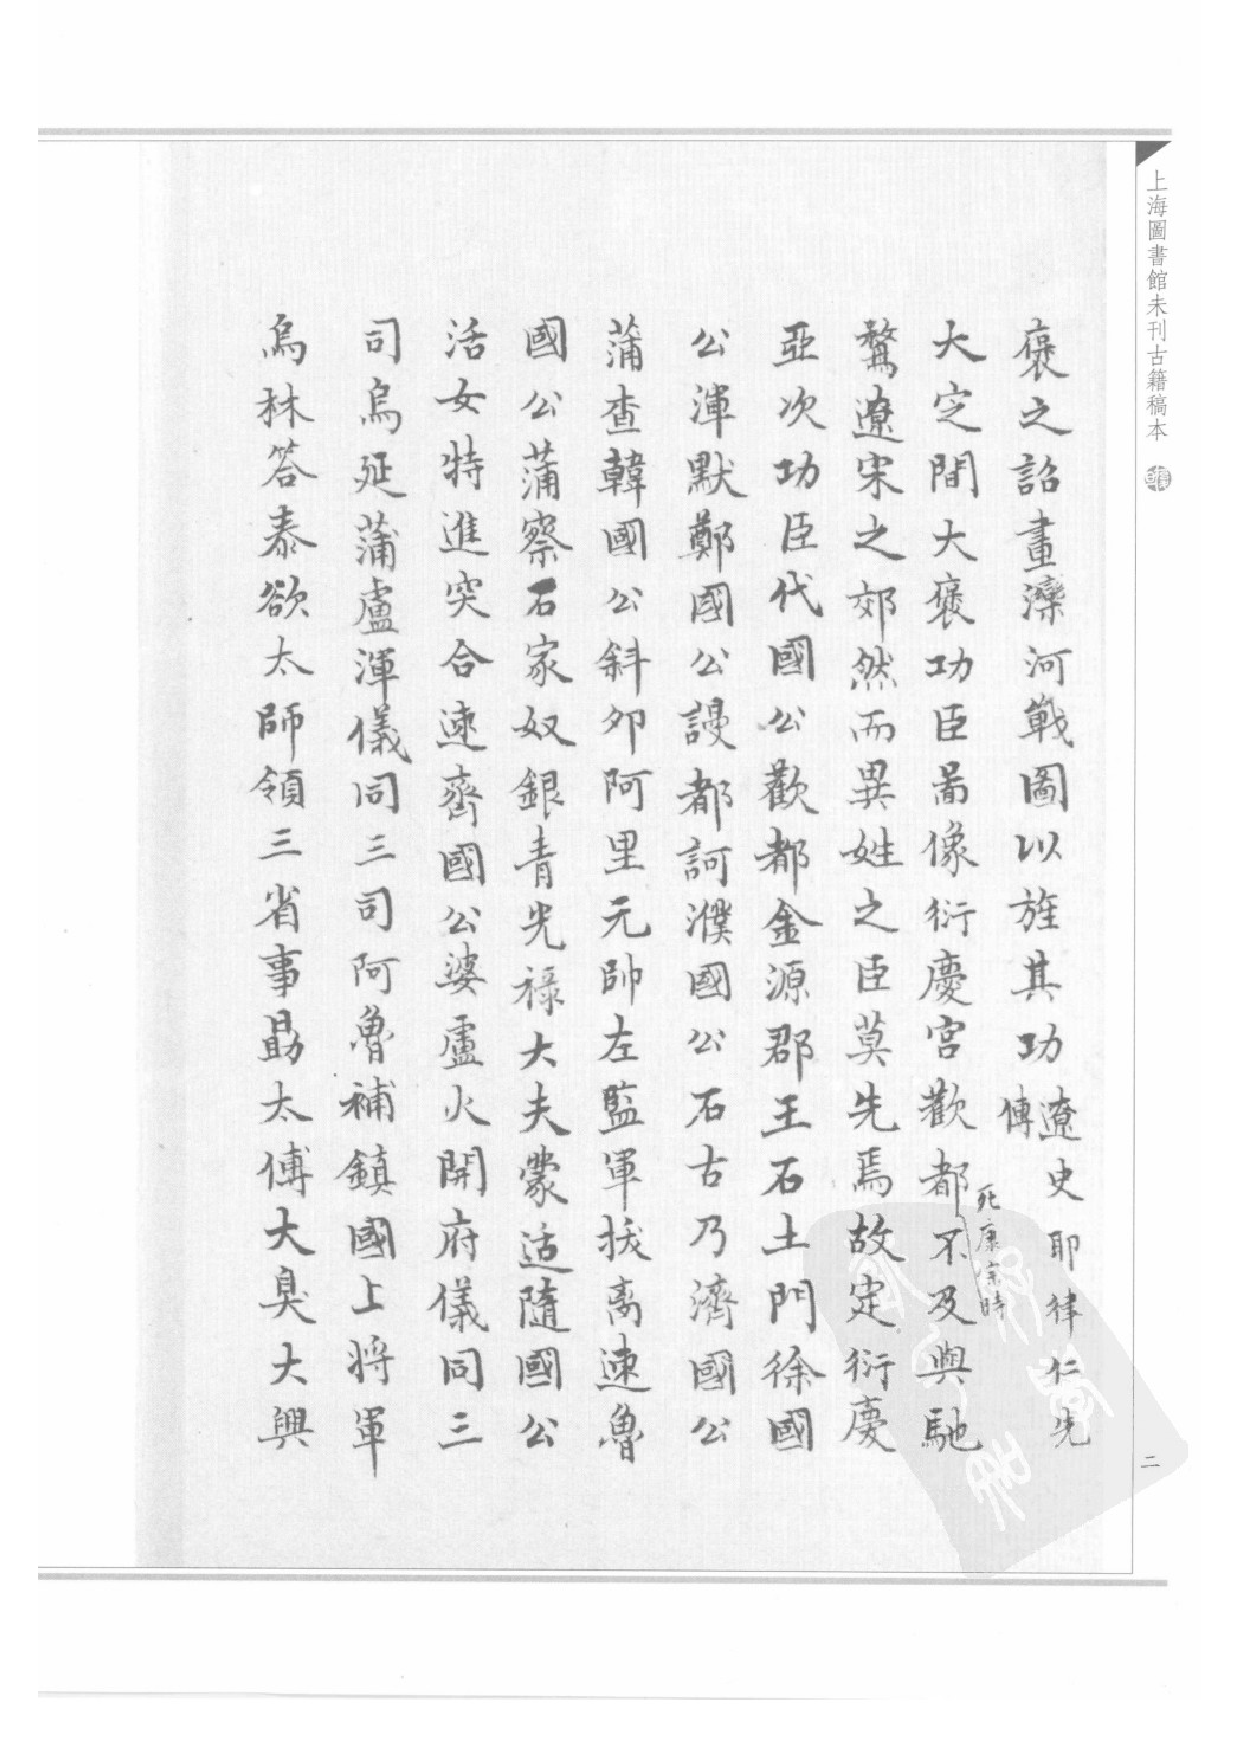 上海圖書館未刊古籍稿本
二
褒之詔畫灤河戰圖以旌其功遼史耶律仁先傳
大定間大褒功臣啚像衍慶宮歡都死康宗時不及與馳
騖遼宋之郊然而異姓之臣莫先焉故定衍慶
亞次功臣代國公歡都金源郡王石土門徐國
公渾默鄭國公謾都訶濮國公石古乃濟國公
蒲查韓國公斜卯阿里元帥左監軍拔离速魯
國公蒲察石家奴銀青光祿大夫蒙适隨國公
活女特進突合速齊國公婆盧火開府儀同三
司烏延蒲盧渾儀同三司阿魯補鎮國上將軍
烏林答泰欲太師領三省事勗太傅大臭大興